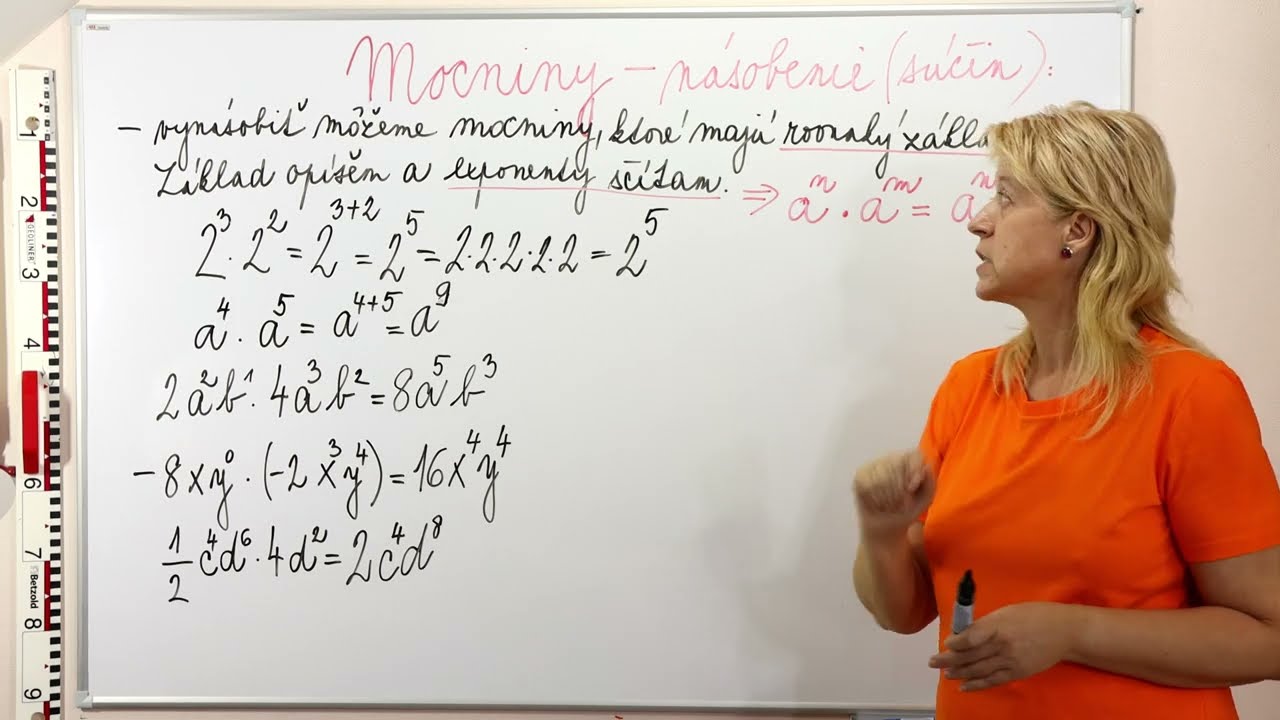 Mocniny – násobenie (súčin):
– vynásobiť môžeme mocniny, ktoré majú rovnaký
Základ opíšem a exponenty sčítam. ⇒ aⁿ · aᵐ = aⁿ
2³ · 2² = 2³⁺² = 2⁵ = 2·2·2·2·2 = 2⁵
a⁴ · a⁵ = a⁴⁺⁵ = a⁹
2a²b¹ · 4a³b² = 8a⁵b³
– 8xy⁰ · (-2x³y⁴) = 16x⁴y⁴
1/2 c⁴d⁶ · 4d² = 2c⁴d⁸
1
2
GEOLINER
3
4
6
7
Betzold
8
9